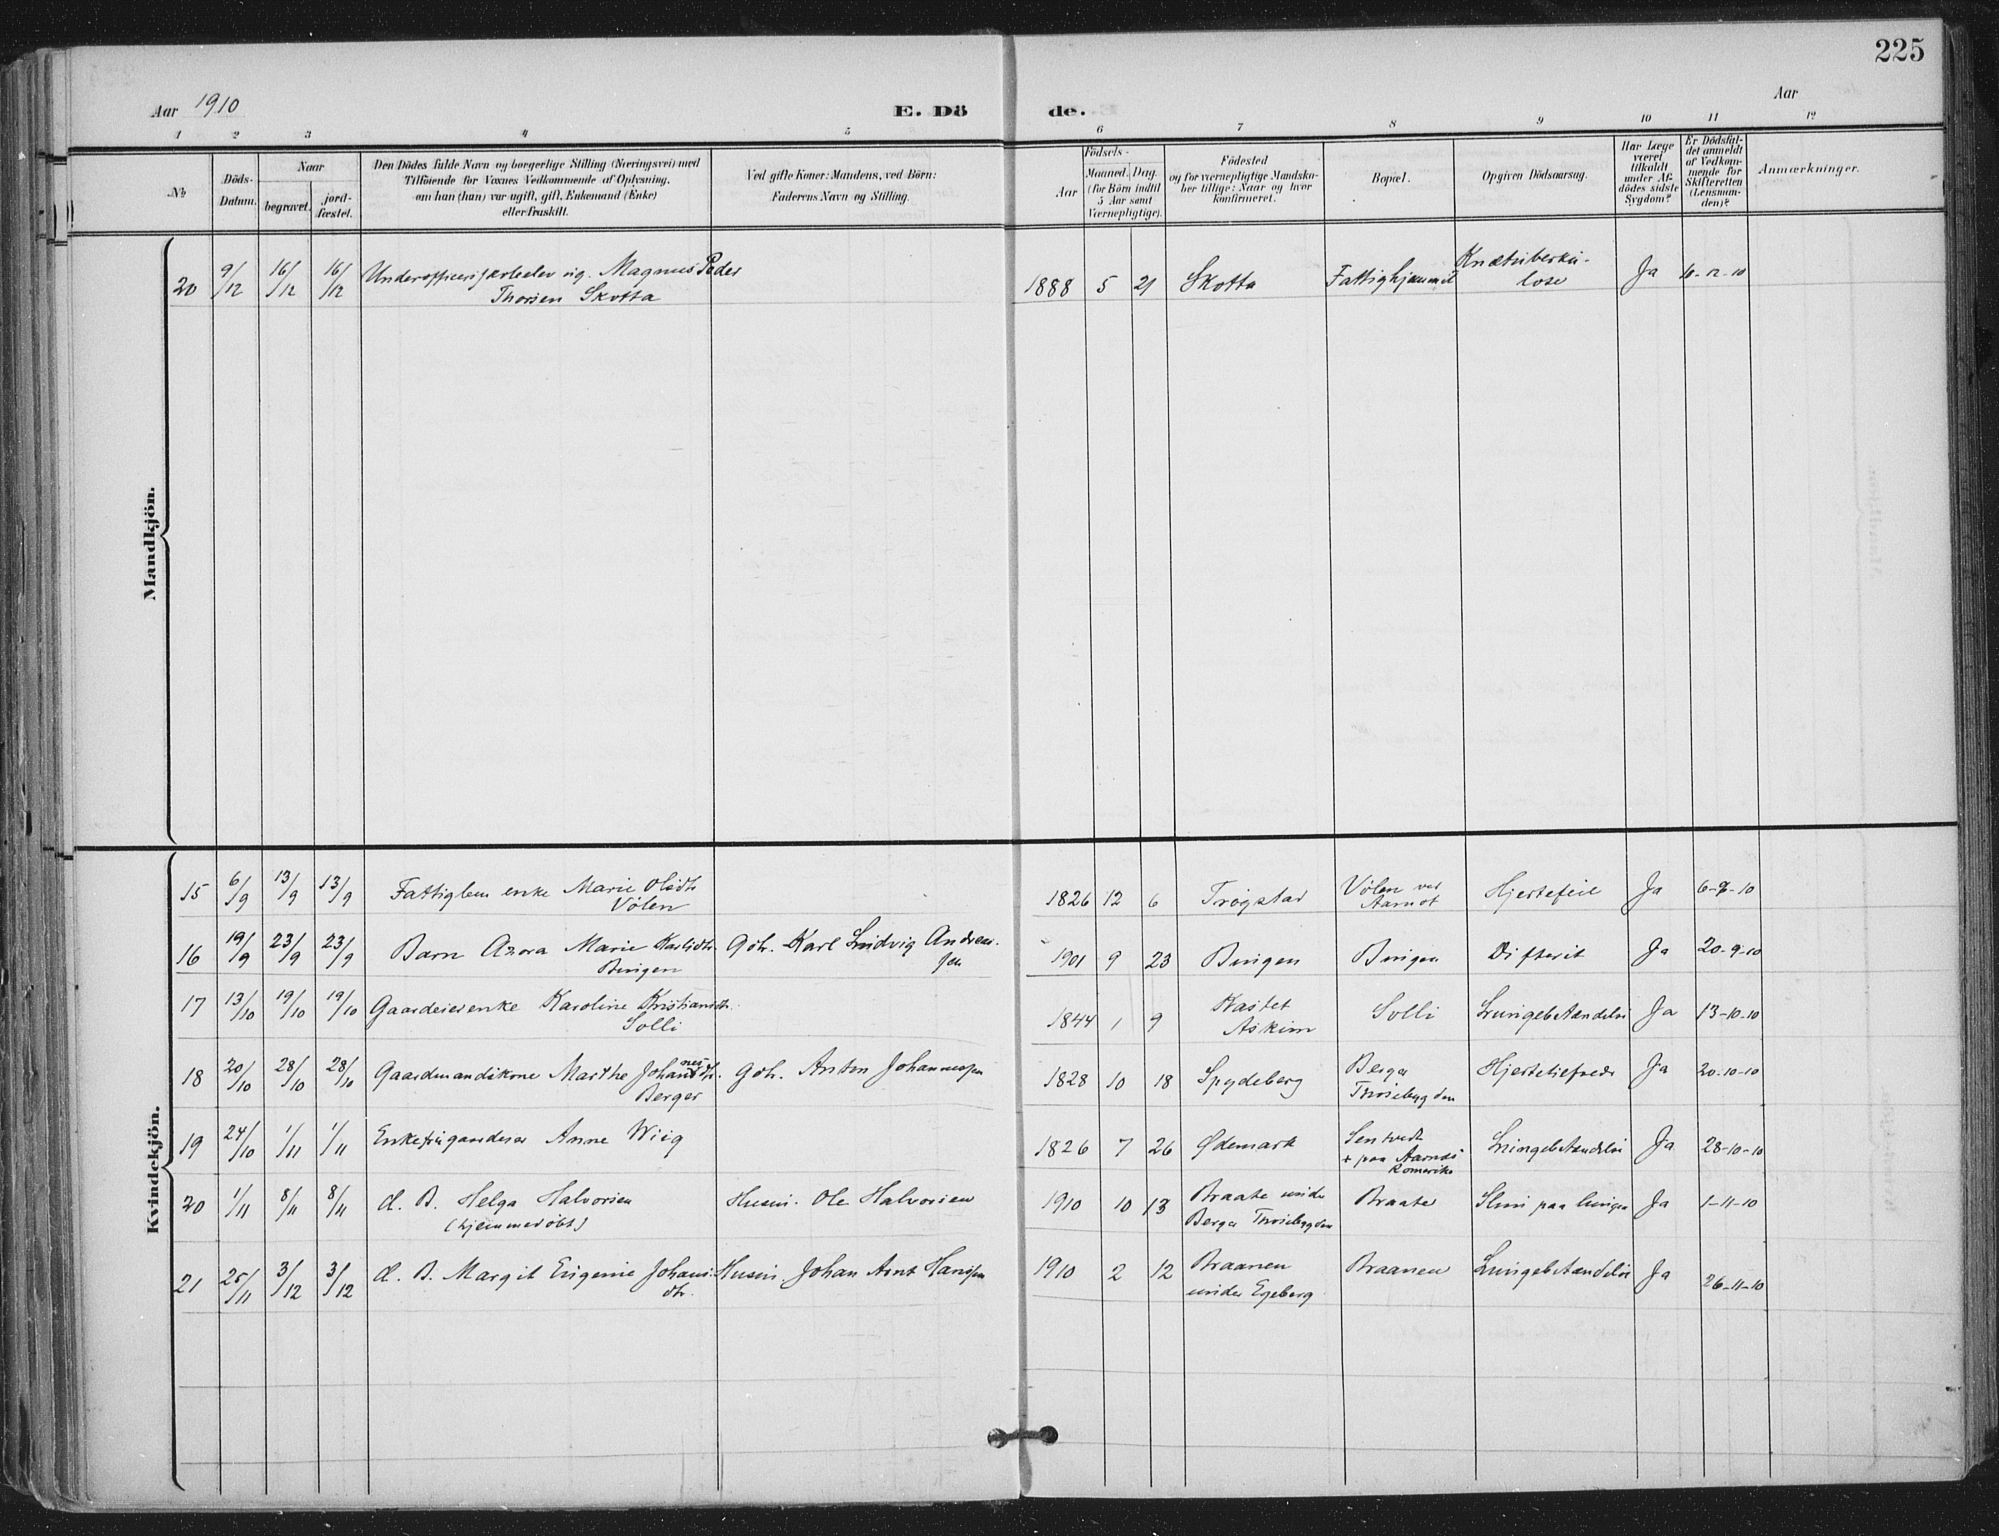 225
Aar 1910 E. Dö de. Aar
1 2 3 4 5 6 7 8 9 10 11 12
№
Döds-
Datum.
Naar
begravet.
jord-
fæstet.
Den Dödes fulde Navn og borgerlige Stilling (Næringsvei) med
Tilföiende for Voxnes Vedkommende af Oplysning,
om han (hun) var ugift, gift, Enkemand (Enke)
eller fraskilt.
Ved gifte Koner: Mandens, ved Börn:
Faderens Navn og Stilling.
Födsels-
Aar
Maaned. Dag.
(for Börn indtil
5 Aar samt
Værnepligtige).
Födested
og for værnepligtige Mandska-
ber tillige: Naar og hvor
konfirmeret.
Bopæl.
Opgiven Dödsaarsag.
Har Læge
været
tilkaldt
under Af-
dödes sidste
Sygdom?
Er Dödsfal-
det anmeldt
af Vedkom-
mende for
Skifteretten
(Lensman-
den)?
Anmærkninger.
Mandkjön.
20 9/12 16/12 16/12 ug. Magnus Peder
Thorsen Skotta
1888 5 21 Skotta Fattighjemmet Knætuberku-
lose Ja 12-10
Kvindekjön.
15 6/9 13/9 13/9 Fattiglem enke Marie Olsdtr.
Vølen
1826 12 6 Trøgstad Vølen ved
Aamot Hjertefeil Ja 6-9-10
16 19/9 23/9 23/9 Barn Azora Marie Karlsdtr.
Bingen Gbr. Karl Ludvig Andreas-
sen
1901 9 23 Bingen Bingen Difterit Ja 20-9-10
17 13/10 19/10 19/10 Gaardeierenke Karoline Kristiansdtr.
Solli
1844 1 9 Kastet
Askim Solli Lungebetændelse Ja 13-10-10
18 20/10 28/10 28/10 Gaardmandskone Marthe Johannesdtr.
Berger Gbr. Anton Johannessen
1828 10 18 Spydeberg Berger
Thoisebygden Hjerteliefred Ja 20-10-10
19 24/10 1/11 1/11 Anne Wiig
1826 7 26 Ødemark
+ paa Aarnes
Romerike Lungebetændelse Ja 28-10-10
20 1/11 8/11 8/11 d. B. Helga Halvorsen
(hjemmedøbt) Husm. Ole Halvorsen
1910 10 13 Braate under
Berger Braate Slim paa lungen Ja 1-11-10
21 25/11 3/12 3/12 d. B. Margit Eugenie Johans-
dtr. Husm. Johan Arnt Hansen
1910 2 12 Braanen
under Egeberg Braanen Lungebetændelse Ja 26-11-10